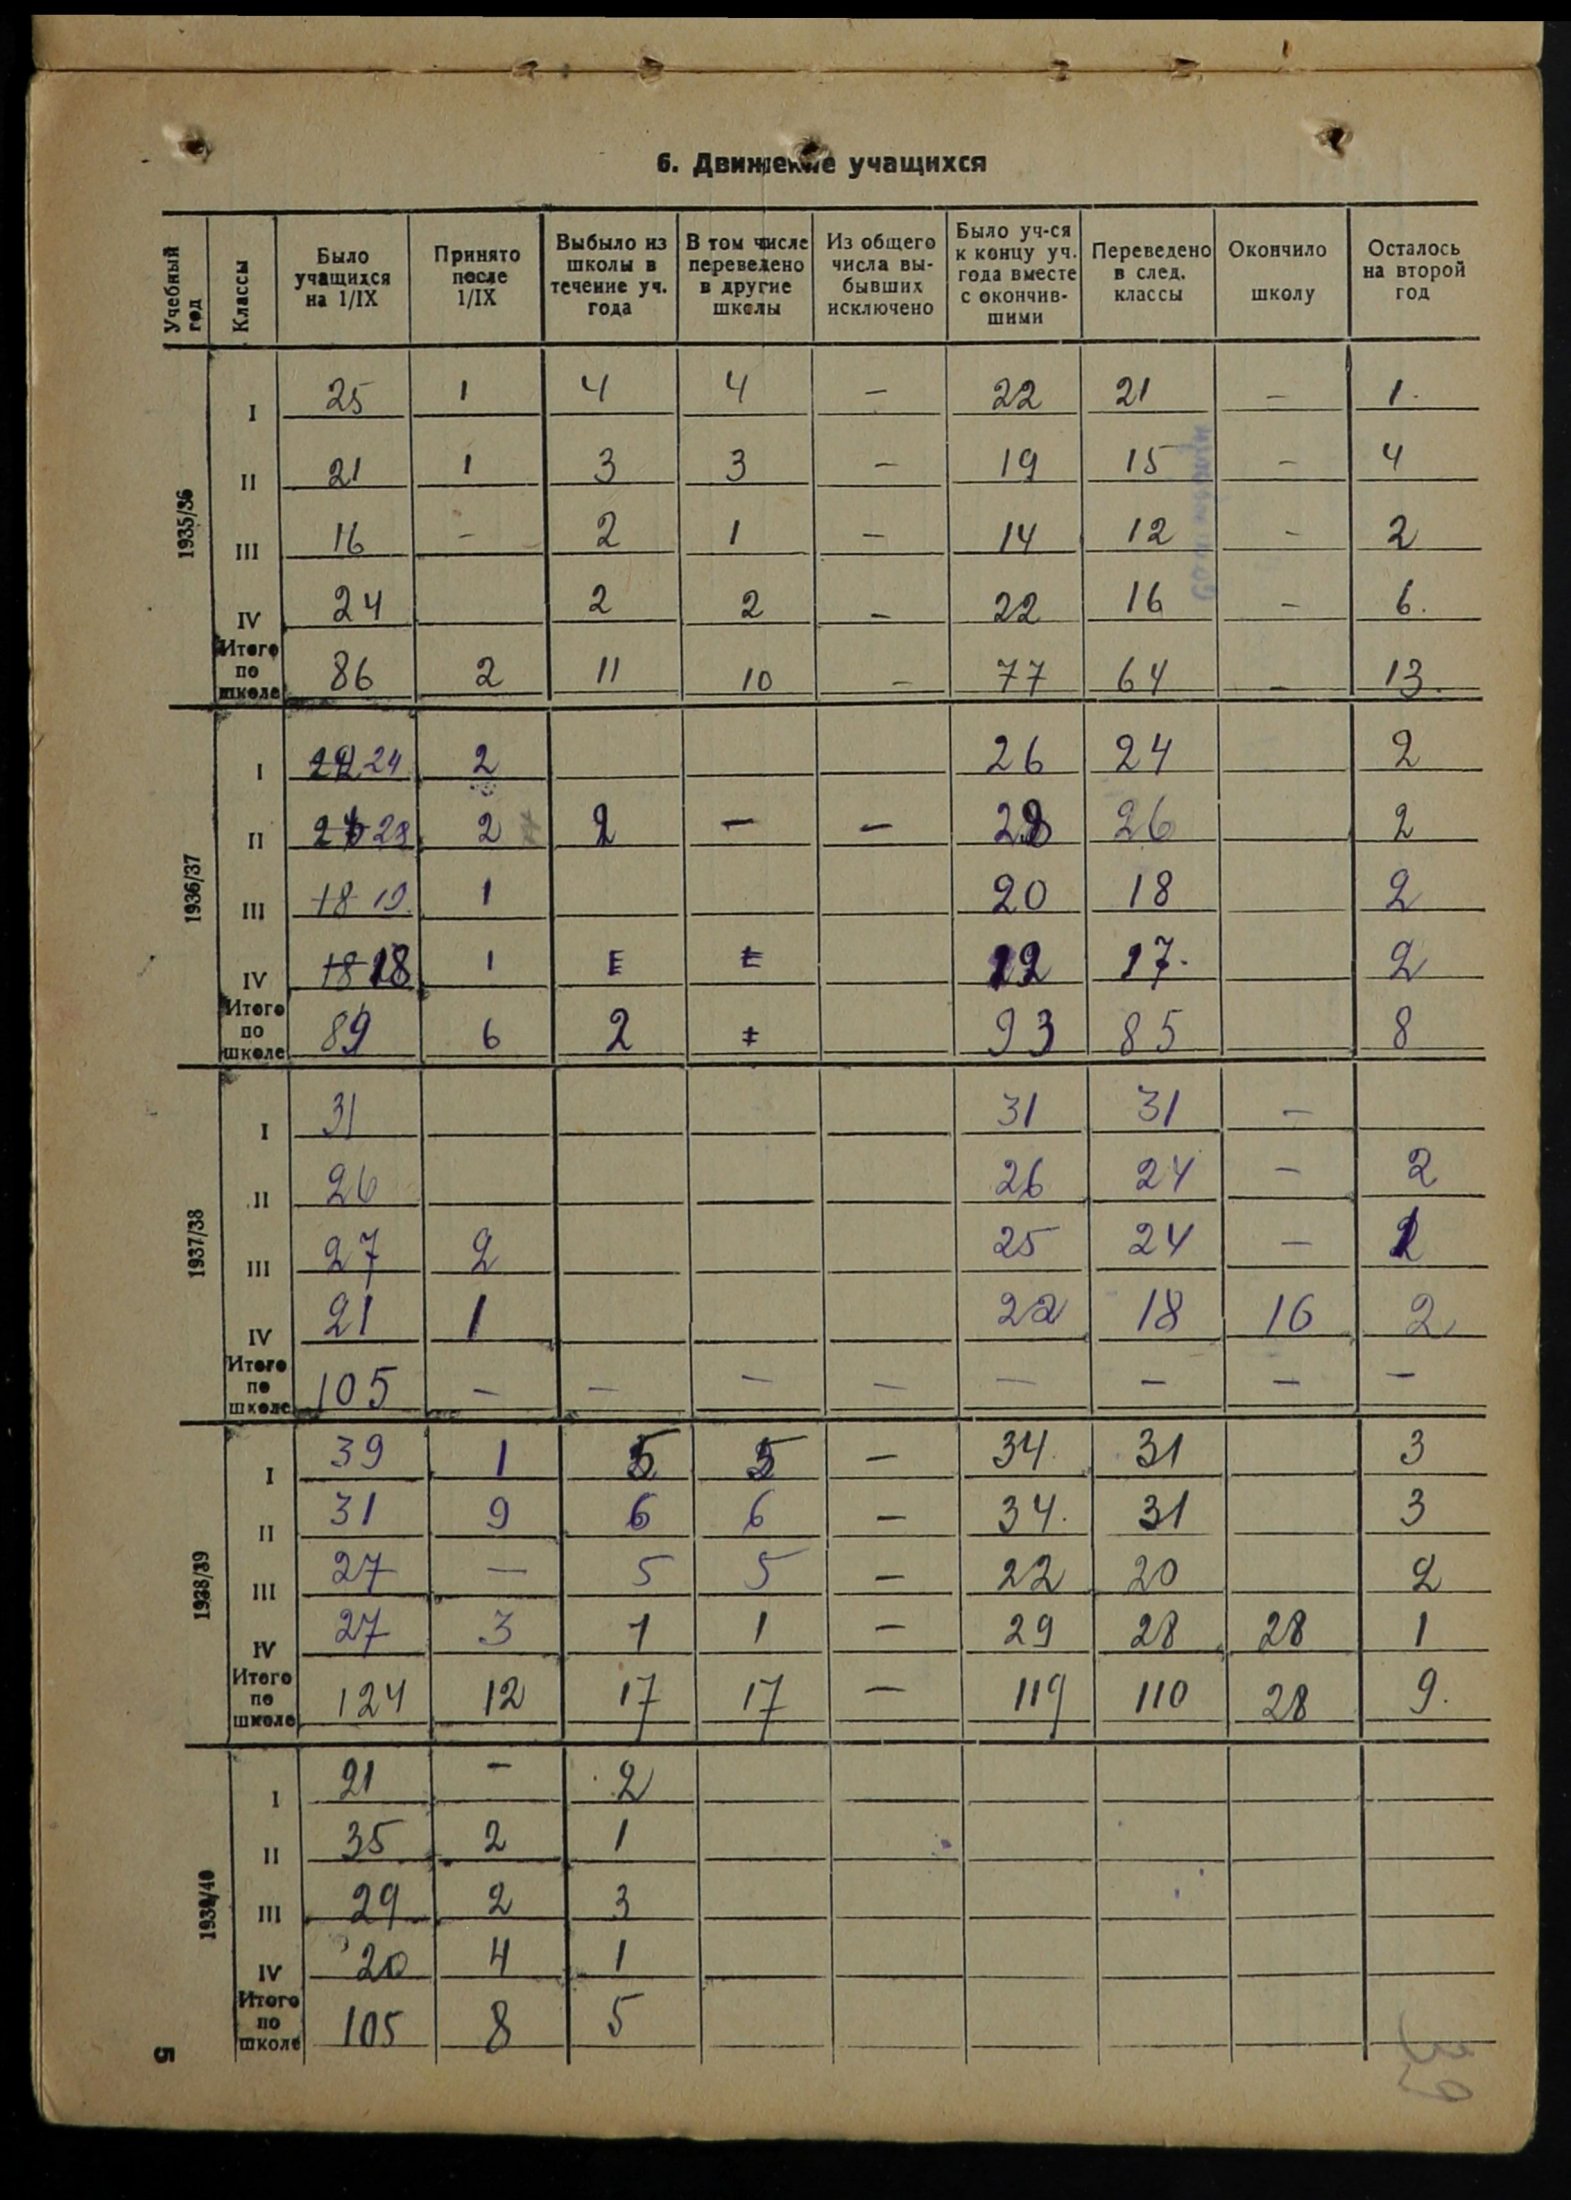 6. Движение учащихся
Учебный год | Классы | Было учащихся на 1/IX | Принято после 1/IX | Выбыло из школы в течение уч. года | В том числе переведено в другие школы | Из общего числа выбывших исключено | Было уч-ся к концу уч. года вместе с окончившими | Переведено в след. классы | Окончило школу | Осталось на второй год
1935/36
I 25 1 4 4 — 22 21 — 1.
II 21 1 3 3 — 19 15 — 4
III 16 - 2 1 — 14 12 - 2
IV 24 2 2 — 22 16 — 6.
Итого по школе 86 2 11 10 — 77 64 — 13.
1936/37
I 24 2 26 24 2
II 28 2 2 — — 28 26 2
III 18 19. 1 20 18 2
IV 18 18 1 17. 2
Итого по школе 89 6 2 93 85 8
1937/38
I 31 31 31 —
II 26 26 24 — 2
III 27 2 25 24 — 1
IV 21 1 22 18 16 2
Итого по школе 105 — — — — — — — —
1938/39
I 39 1 5 5 — 34. 31 3
II 31 9 6 6 — 34. 31 3
III 27 — 5 5 — 22 20 2
IV 27 3 1 1 — 29 28 28 1
Итого по школе 124 12 17 17 — 119 110 28 9.
1939/40
I 21 - 2
II 35 2 1
III 29 2 3
IV 20 4 1
Итого по школе 105 8 5
5